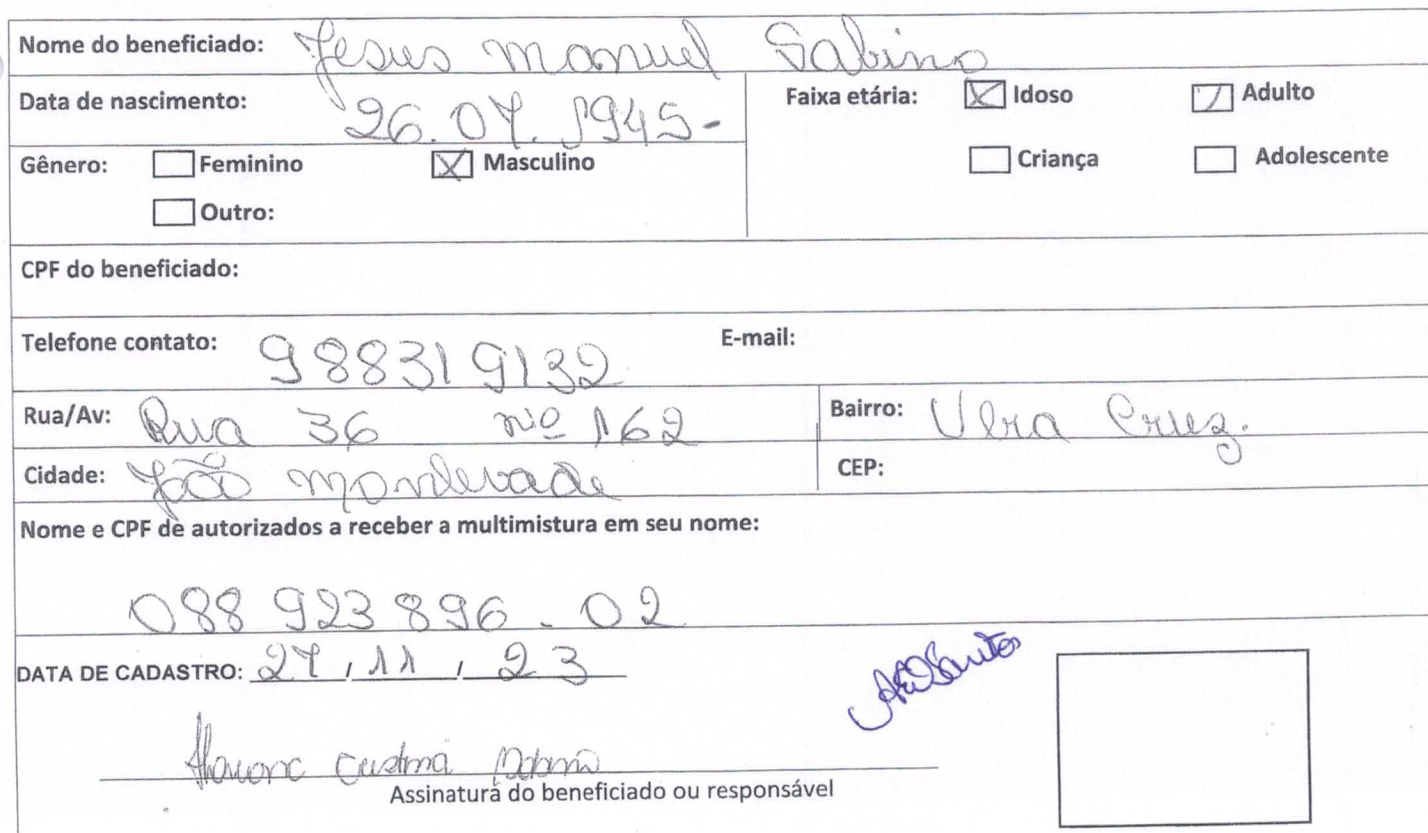 Nome do beneficiado: Jesus Manuel Sabino
Data de nascimento: 26.07.1945-
Faixa etária: Idoso Adulto
Gênero: Feminino Masculino
Criança Adolescente
Outro:
CPF do beneficiado:
Telefone contato: 988319132 E-mail:
Rua/Av: Rua 36 nº 162 Bairro: Vera Cruz.
Cidade: João Monlevade CEP:
Nome e CPF de autorizados a receber a multimistura em seu nome:
088 923 896 - 02
DATA DE CADASTRO: 27 / 11 / 23
Santos
Assinatura do beneficiado ou responsável